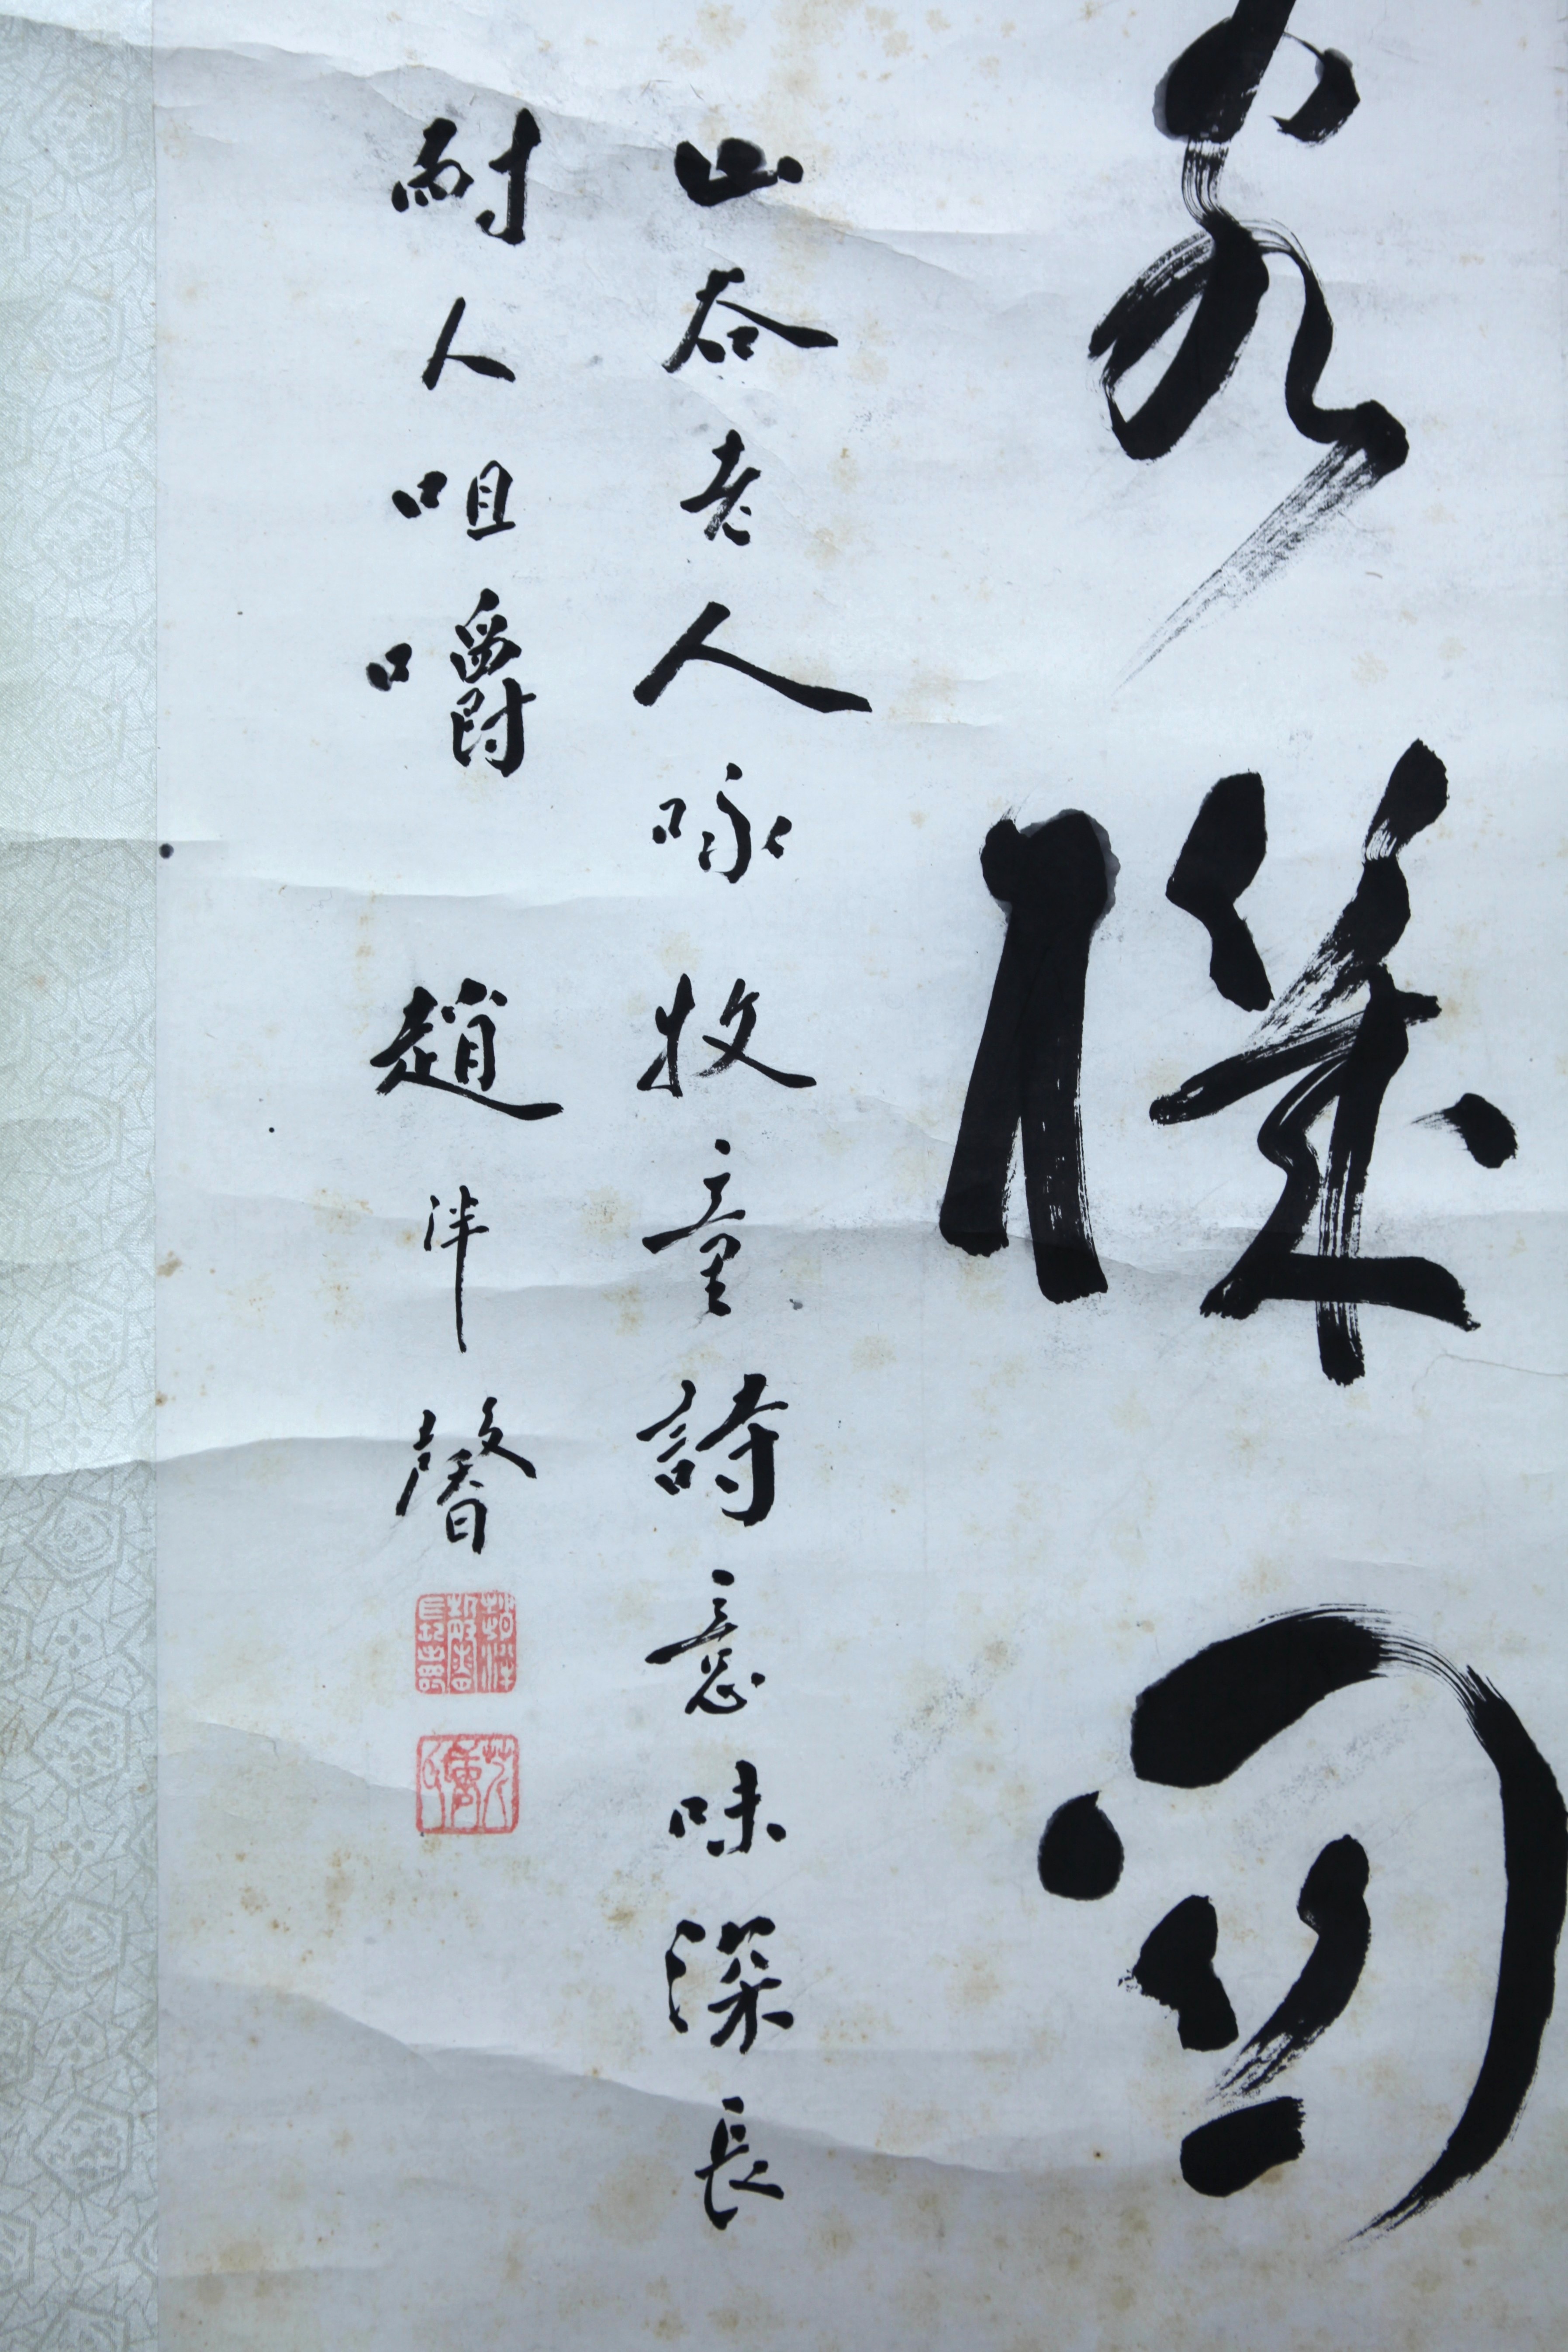 客機關
山谷老人咏牧童詩意味深長
耐人咀嚼 趙泮馨